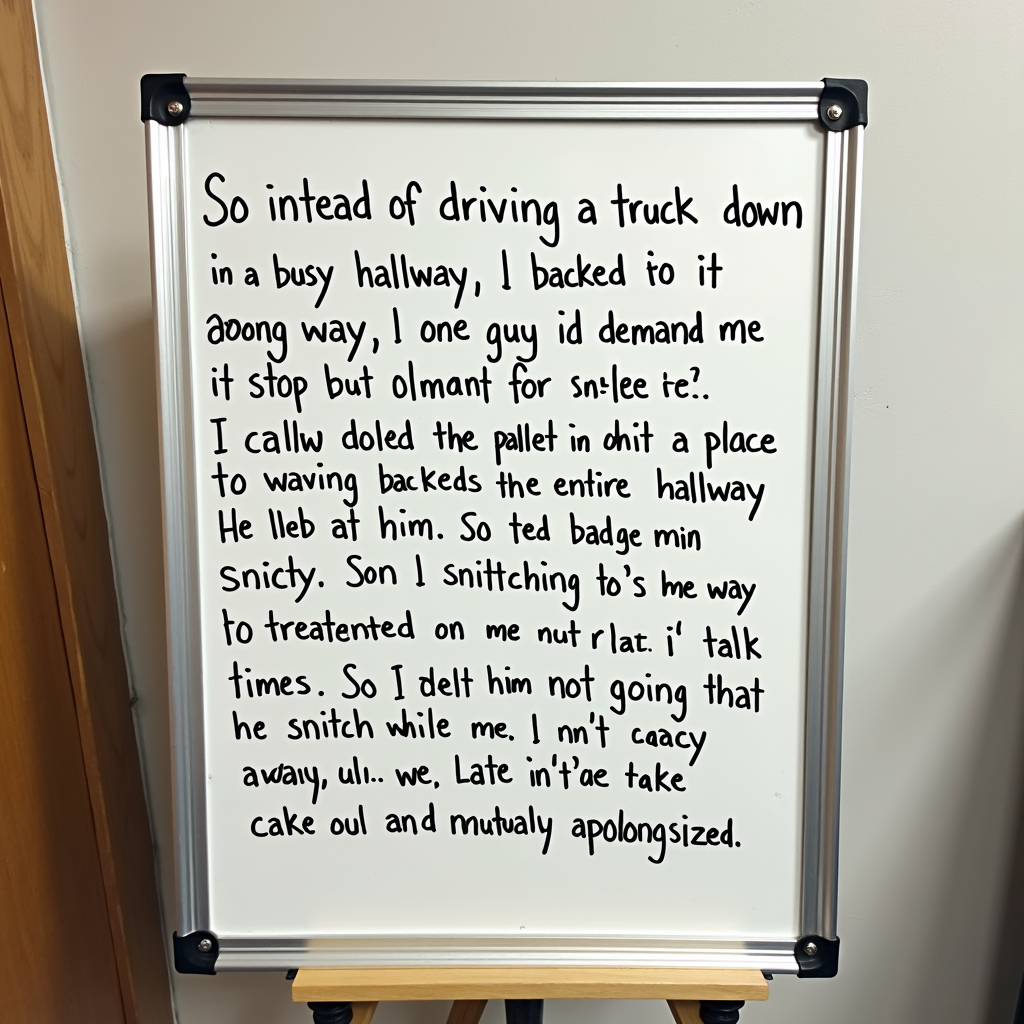 So intead of driving a truck down
in a busy hallway, I backed to it
aoong way, I one guy id demand me
it stop but olmant for sn:lee te?.
I callw doled the pallet in ohit a place
to waving backeds the entire hallway
He lleb at him. So ted badge min
snicty. Son I snittching to's he way
to treatented on me nut rlat. i' talk
times. So I delt him not going that
he snitch while me. I nn't caacy
away, uli.. we, Late in't'ae take
cake oul and mutualy apolongsized.